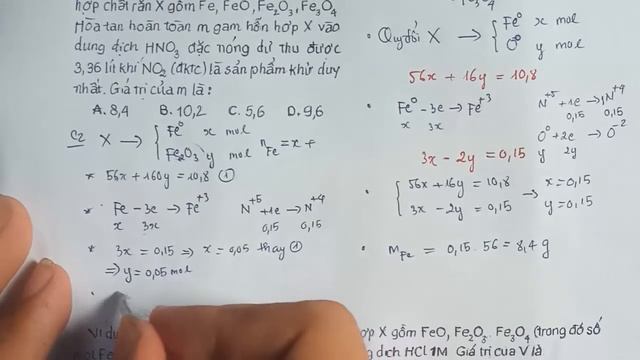 hợp chất rắn X gồm Fe, FeO, Fe₂O₃, Fe₃O₄
Hòa tan hoàn toàn m gam hỗn hợp X vào
dung dịch HNO₃ đặc nóng dư thu được
3,36 lít khí NO₂ (đktc) là sản phẩm khử duy
nhất. Giá trị của m là :
A. 8,4 B. 10,2 C. 5,6 D. 9,6
C2 X → { Fe⁰ x mol
Fe₂O₃ y mol n Fe = x +
* 56x + 160y = 10,8 ①
* Fe - 3e → Fe⁺³ N⁺⁵ + 1e → N⁺⁴
x 3x 0,15 0,15
* 3x = 0,15 ⇒ x = 0,05 thay ①
⇒ y = 0,05 mol
• Quy đổi X → { Fe⁰ x mol
O⁰ y mol
56x + 16y = 10,8
• Fe⁰ - 3e → Fe⁺³ N⁺⁵ + 1e → N⁺⁴
x 3x 0,15 0,15
O⁰ + 2e → O⁻²
3x - 2y = 0,15 y 2y
• { 56x + 16y = 10,8 → x = 0,15
3x - 2y = 0,15 y = 0,15
• m Fe = 0,15 . 56 = 8,4 g
Ví dụ
hợp X gồm FeO, Fe₂O₃, Fe₃O₄ (trong đó số
mol Fe
dịch HCl 1M Giá trị của V là